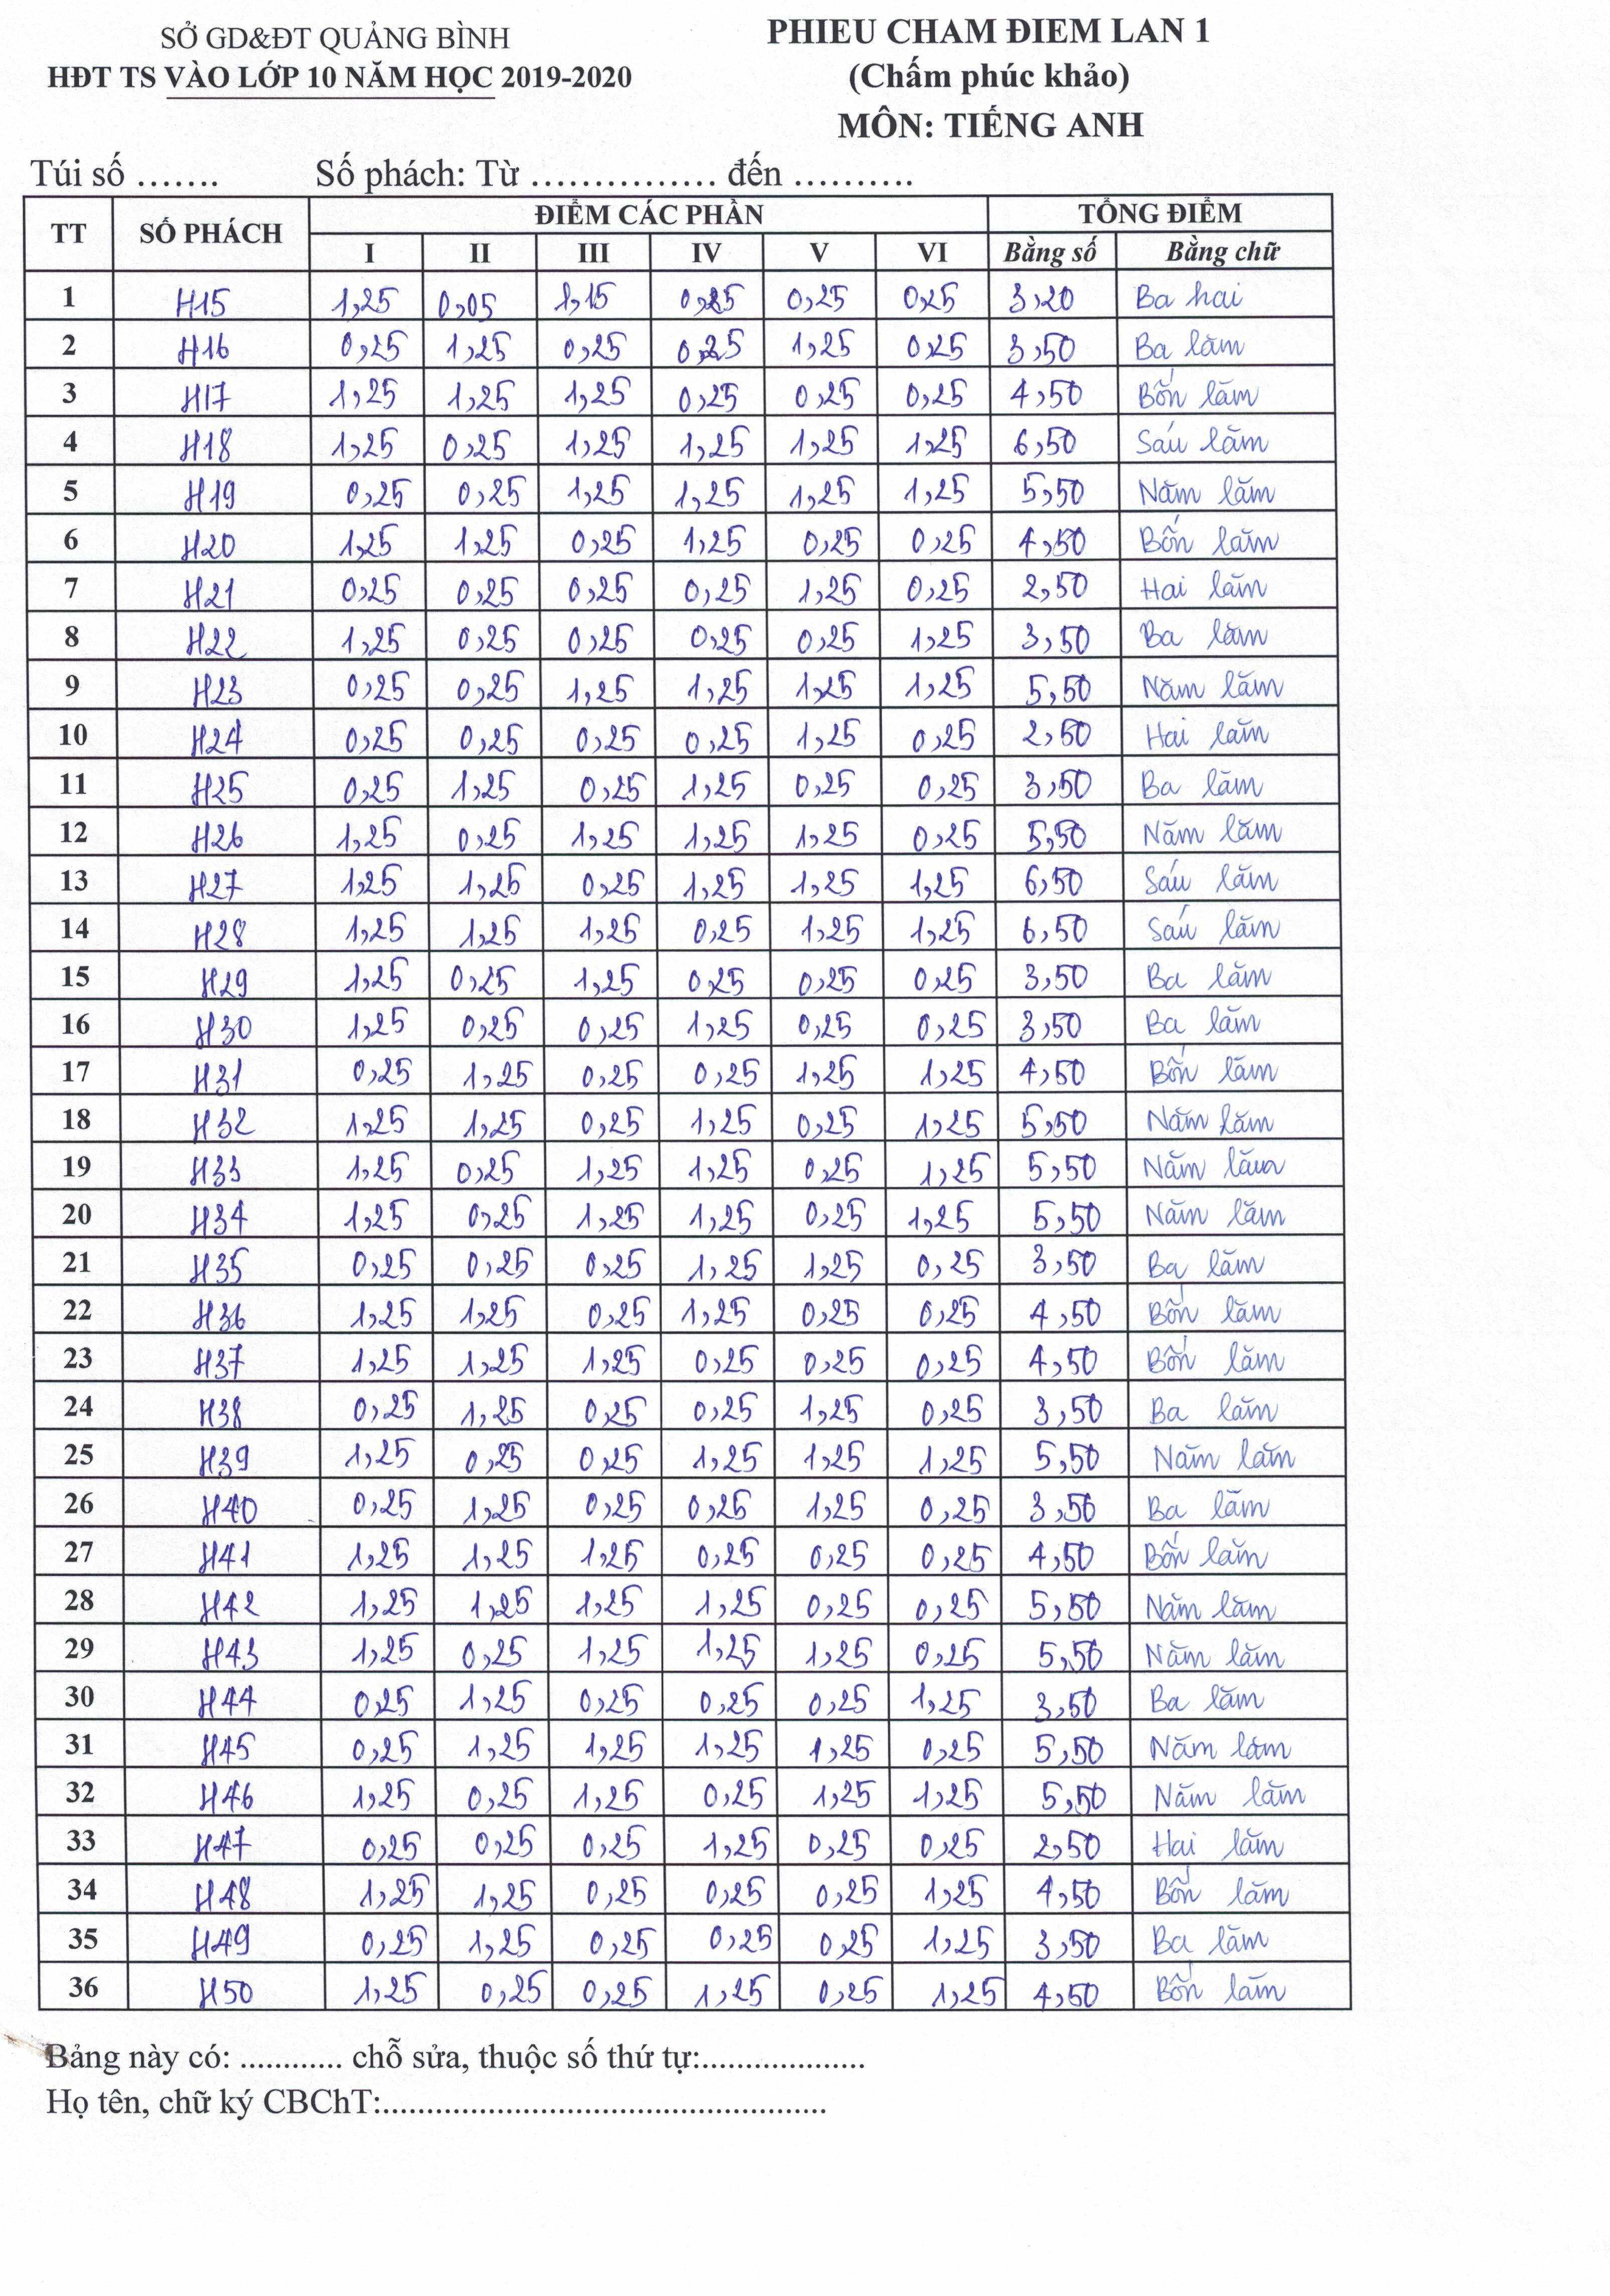 SỞ GD&ĐT QUẢNG BÌNH
HĐT TS VÀO LỚP 10 NĂM HỌC 2019-2020
PHIEU CHAM ĐIEM LAN 1
(Chấm phúc khảo)
MÔN: TIẾNG ANH
Túi số ....... Số phách: Từ ............... đến ..........
TT SỐ PHÁCH ĐIỂM CÁC PHẦN TỔNG ĐIỂM
I II III IV V VI Bằng số Bằng chữ
1 H15 1,25 0,05 1,15 0,25 0,25 0,25 3,20 Ba hai
2 H16 0,25 1,25 0,25 0,25 1,25 0,25 3,50 Ba lăm
3 H17 1,25 1,25 1,25 0,25 0,25 0,25 4,50 Bốn lăm
4 H18 1,25 0,25 1,25 1,25 1,25 1,25 6,50 Sáu lăm
5 H19 0,25 0,25 1,25 1,25 1,25 1,25 5,50 Năm lăm
6 H20 1,25 1,25 0,25 1,25 0,25 0,25 4,50 Bốn lăm
7 H21 0,25 0,25 0,25 0,25 1,25 0,25 2,50 Hai lăm
8 H22 1,25 0,25 0,25 0,25 0,25 1,25 3,50 Ba lăm
9 H23 0,25 0,25 1,25 1,25 1,25 1,25 5,50 Năm lăm
10 H24 0,25 0,25 0,25 0,25 1,25 0,25 2,50 Hai lăm
11 H25 0,25 1,25 0,25 1,25 0,25 0,25 3,50 Ba lăm
12 H26 1,25 0,25 1,25 1,25 1,25 0,25 5,50 Năm lăm
13 H27 1,25 1,25 0,25 1,25 1,25 1,25 6,50 Sáu lăm
14 H28 1,25 1,25 1,25 0,25 1,25 1,25 6,50 Sáu lăm
15 H29 1,25 0,25 1,25 0,25 0,25 0,25 3,50 Ba lăm
16 H30 1,25 0,25 0,25 1,25 0,25 0,25 3,50 Ba lăm
17 H31 0,25 1,25 0,25 0,25 1,25 1,25 4,50 Bốn lăm
18 H32 1,25 1,25 0,25 1,25 0,25 1,25 5,50 Năm lăm
19 H33 1,25 0,25 1,25 1,25 0,25 1,25 5,50 Năm lăm
20 H34 1,25 0,25 1,25 1,25 0,25 1,25 5,50 Năm lăm
21 H35 0,25 0,25 0,25 1,25 1,25 0,25 3,50 Ba lăm
22 H36 1,25 1,25 0,25 1,25 0,25 0,25 4,50 Bốn lăm
23 H37 1,25 1,25 1,25 0,25 0,25 0,25 4,50 Bốn lăm
24 H38 0,25 1,25 0,25 0,25 1,25 0,25 3,50 Ba lăm
25 H39 1,25 0,25 0,25 1,25 1,25 1,25 5,50 Năm lăm
26 H40 0,25 1,25 0,25 0,25 1,25 0,25 3,50 Ba lăm
27 H41 1,25 1,25 1,25 0,25 0,25 0,25 4,50 Bốn lăm
28 H42 1,25 1,25 1,25 1,25 0,25 0,25 5,50 Năm lăm
29 H43 1,25 0,25 1,25 1,25 1,25 0,25 5,50 Năm lăm
30 H44 0,25 1,25 0,25 0,25 0,25 1,25 3,50 Ba lăm
31 H45 0,25 1,25 1,25 1,25 1,25 0,25 5,50 Năm lăm
32 H46 1,25 0,25 1,25 0,25 1,25 1,25 5,50 Năm lăm
33 H47 0,25 0,25 0,25 1,25 0,25 0,25 2,50 Hai lăm
34 H48 1,25 1,25 0,25 0,25 0,25 1,25 4,50 Bốn lăm
35 H49 0,25 1,25 0,25 0,25 0,25 1,25 3,50 Ba lăm
36 H50 1,25 0,25 0,25 1,25 0,25 1,25 4,50 Bốn lăm
Bảng này có: ............ chỗ sửa, thuộc số thứ tự:...................
Họ tên, chữ ký CBChT:...................................................